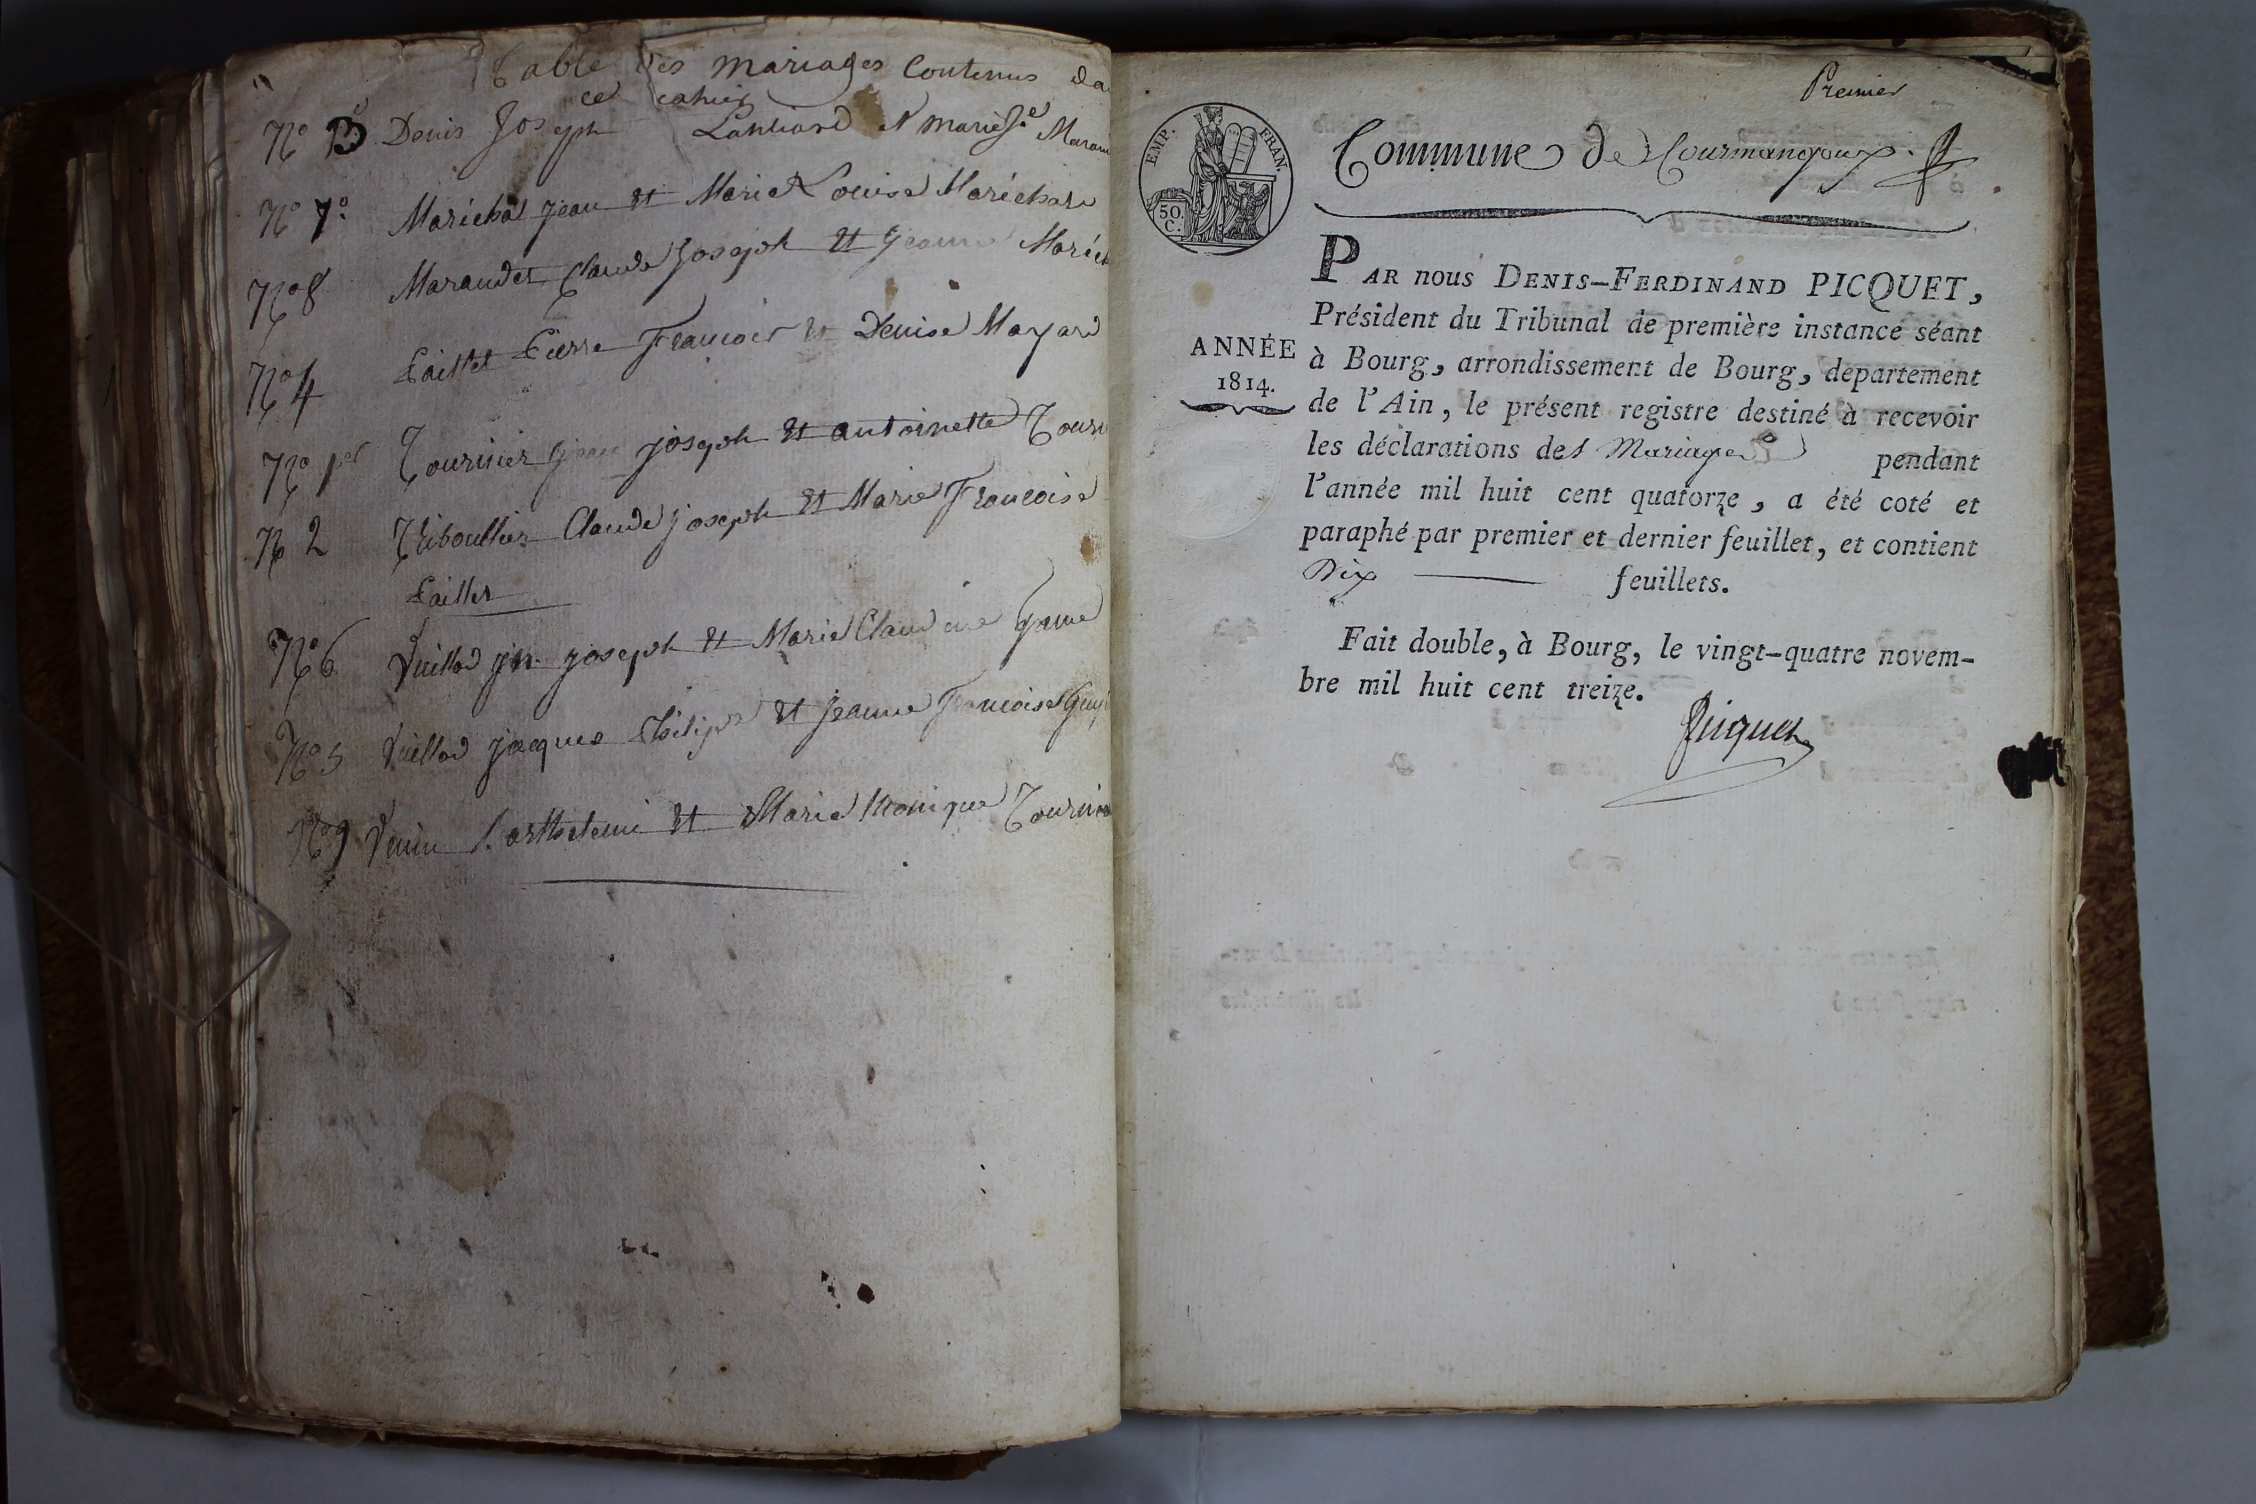 Table des mariages Contenus da
ce cahier
No 3 Denis Joseph et marie Jse
No 7o Maréchal jean et Marie Louise Maréchal
No 8 Maraudet Claude Joseph et jeanne Maréch
No 4 Paillet Pierre Francois et Denise Mayard
No 1er Tournier jean joseph et antoinette Tourn
N 2 Thiboullier Claude joseph et Marie Francoise
Paillet
No 6 Vuillod jn joseph et Marie Claudine
No 5 Vuillod jacques Philipe et jeanne Francoise
No 9 Barthelemi et Marie Monique Tournier
Premier
EMP. FRAN.
50.
C.
Commune de Courmangoux.
PAR nous DENIS-FERDINAND PICQUET,
Président du Tribunal de première instance séant
ANNÉE
1814.
à Bourg, arrondissement de Bourg, département
de l'Ain, le présent registre destiné à recevoir
les déclarations des Mariages pendant
l'année mil huit cent quatorze, a été coté et
paraphé par premier et dernier feuillet, et contient
Dix feuillets.
Fait double, à Bourg, le vingt-quatre novem-
bre mil huit cent treize.
Picquet